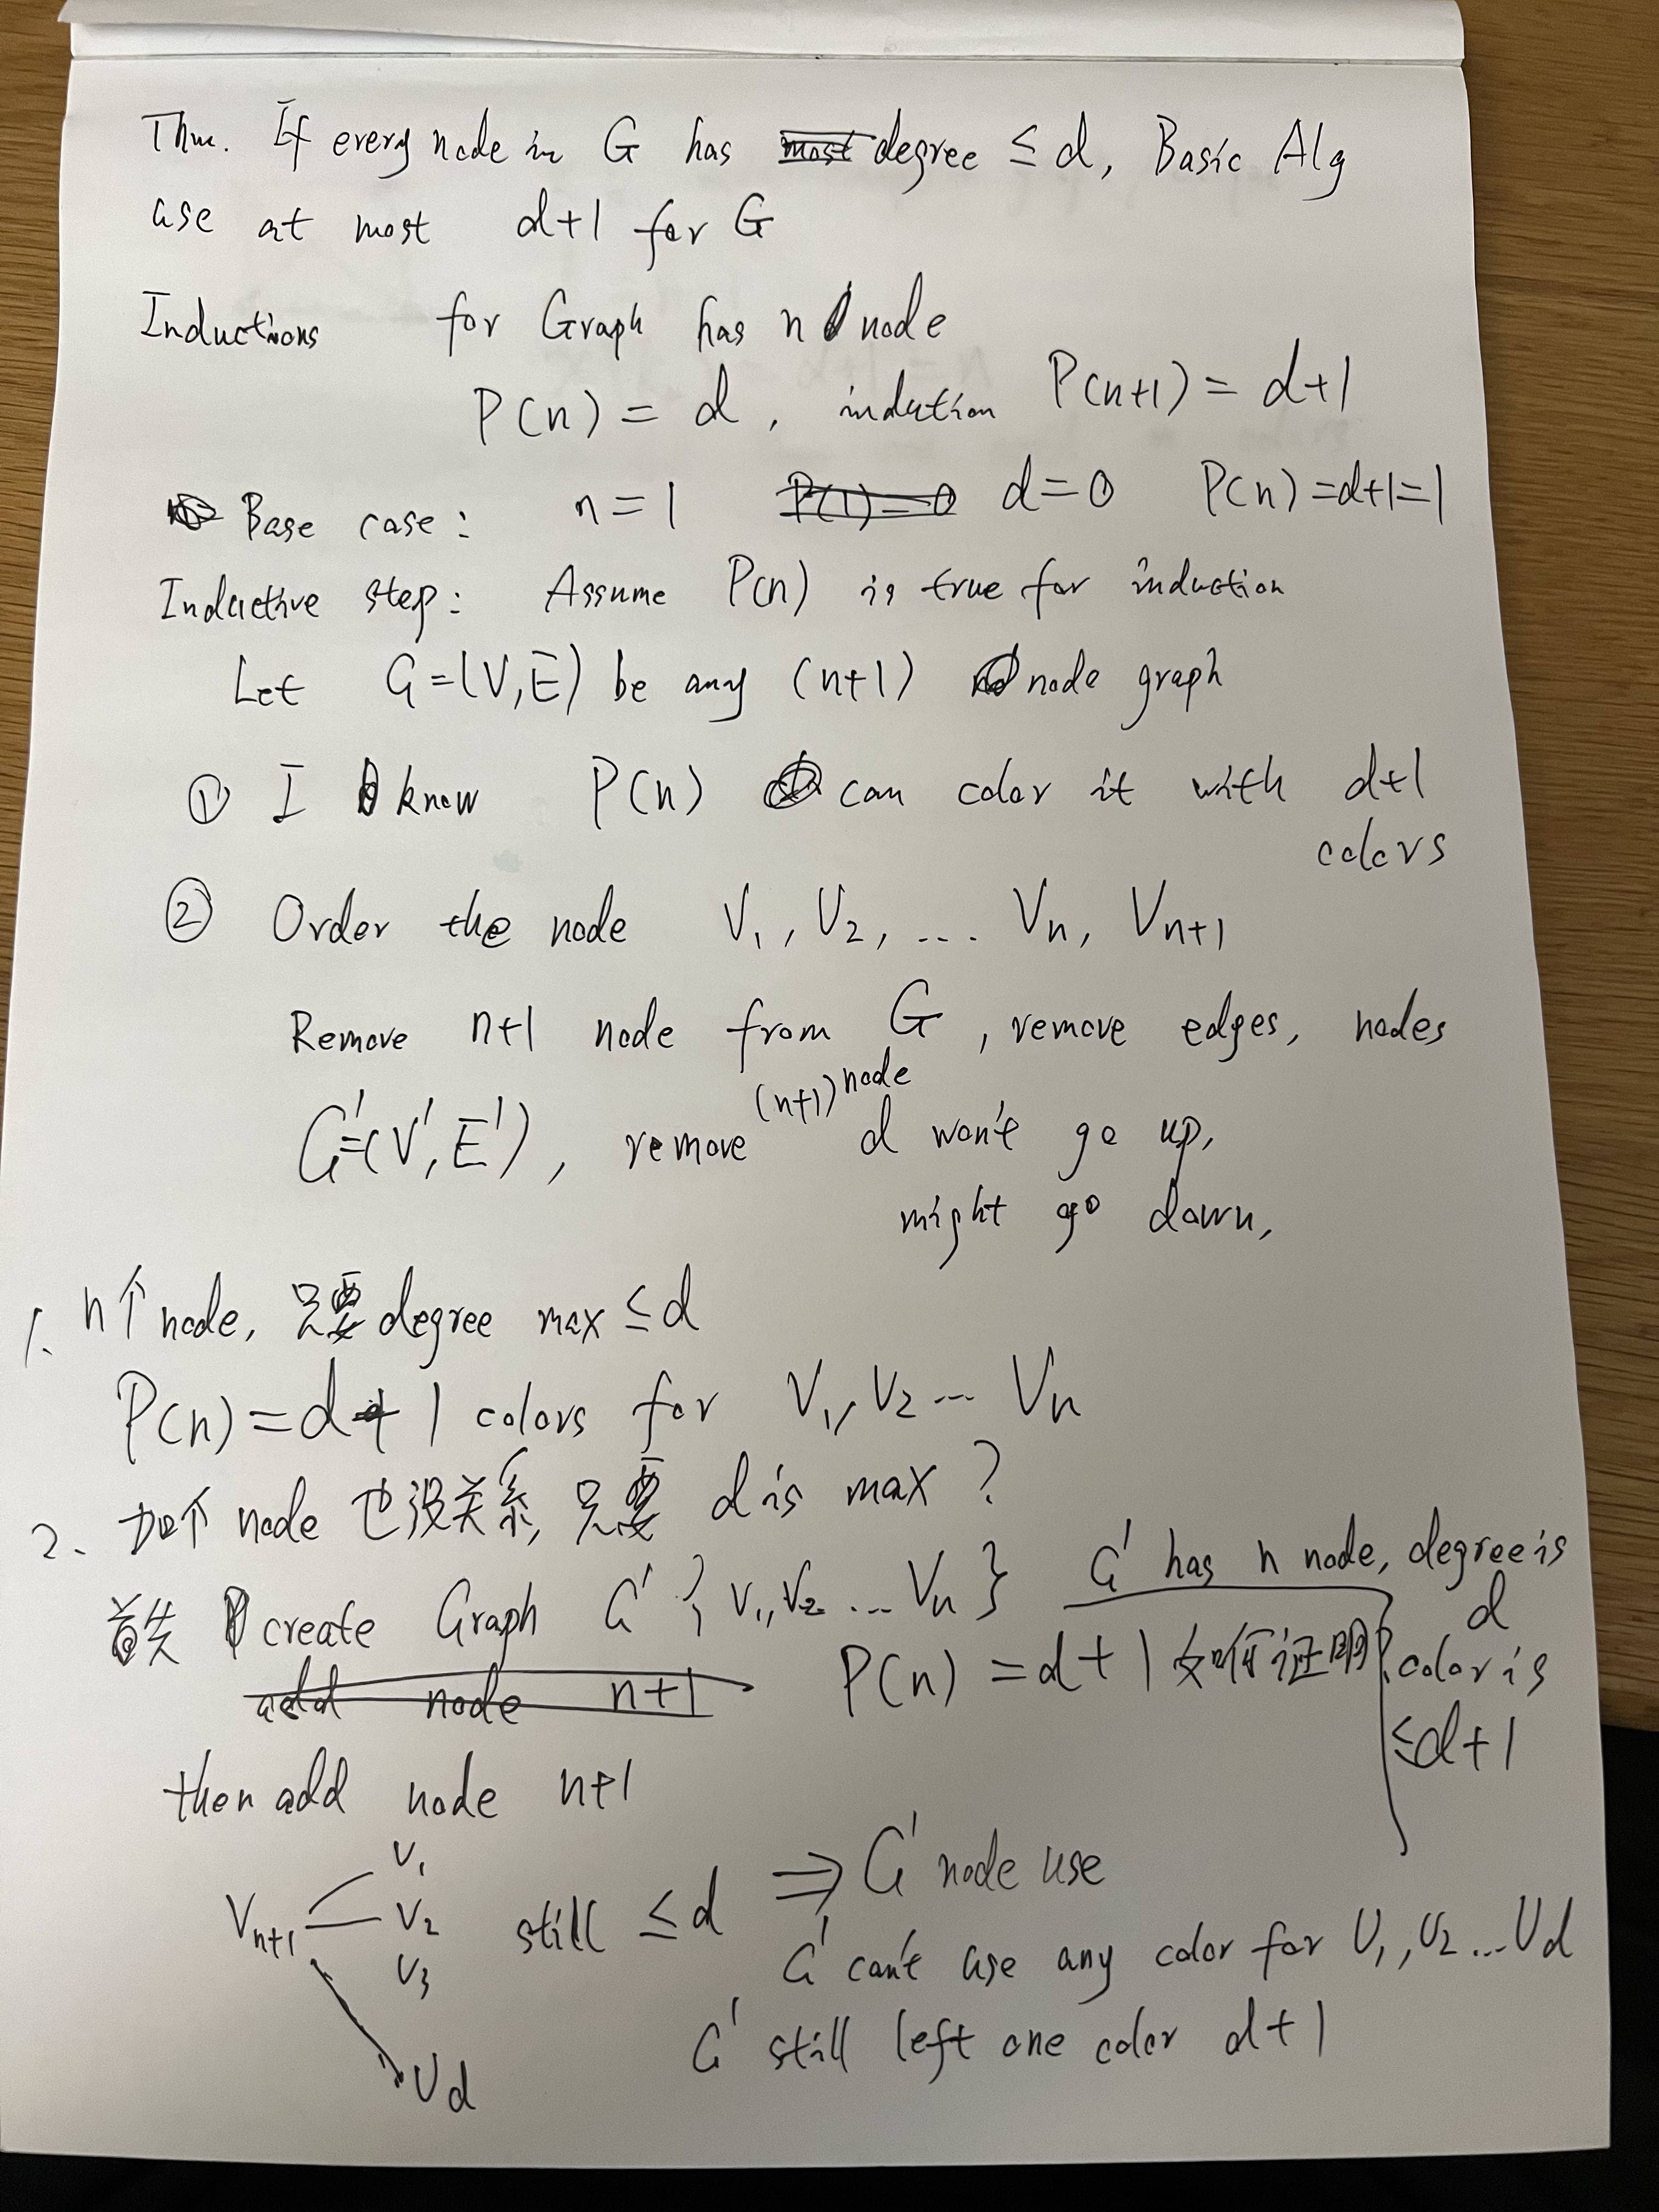 Thm. If every node in G has most degree ≤ d, Basic Alg
use at most d+1 for G
Inductions for Graph has n node
P(n) = d, indution P(n+1) = d+1
Base case: n=1 P(1)=0 d=0 P(n)=d+1=1
Inductive step: Assume P(n) is true for induction
Let G=(V,E) be any (n+1) node graph
① I know P(n) can color it with d+1
colors
② Order the node V₁, V₂, ... Vn, Vn+1
Remove n+1 node from G, remove edges, nodes
G'=(V',E'), remove (n+1) node d won't go up,
might go down,
1. n个node, 只要degree max ≤ d
P(n)=d+1 colors for V₁, V₂ ... Vn
2. 加个node也没关系, 只要 d is max?
首先 create Graph G' { V₁, V₂ ... Vn } G' has n node, degree is
d
add node n+1 P(n) = d+1 如何证明? color is
≤d+1
then add node n+1
Vn+1 V₁ V₂ V₃ Vd still ≤ d ⇒ G' node use
G' can't use any color for V₁, V₂ ... Vd
G' still left one color d+1